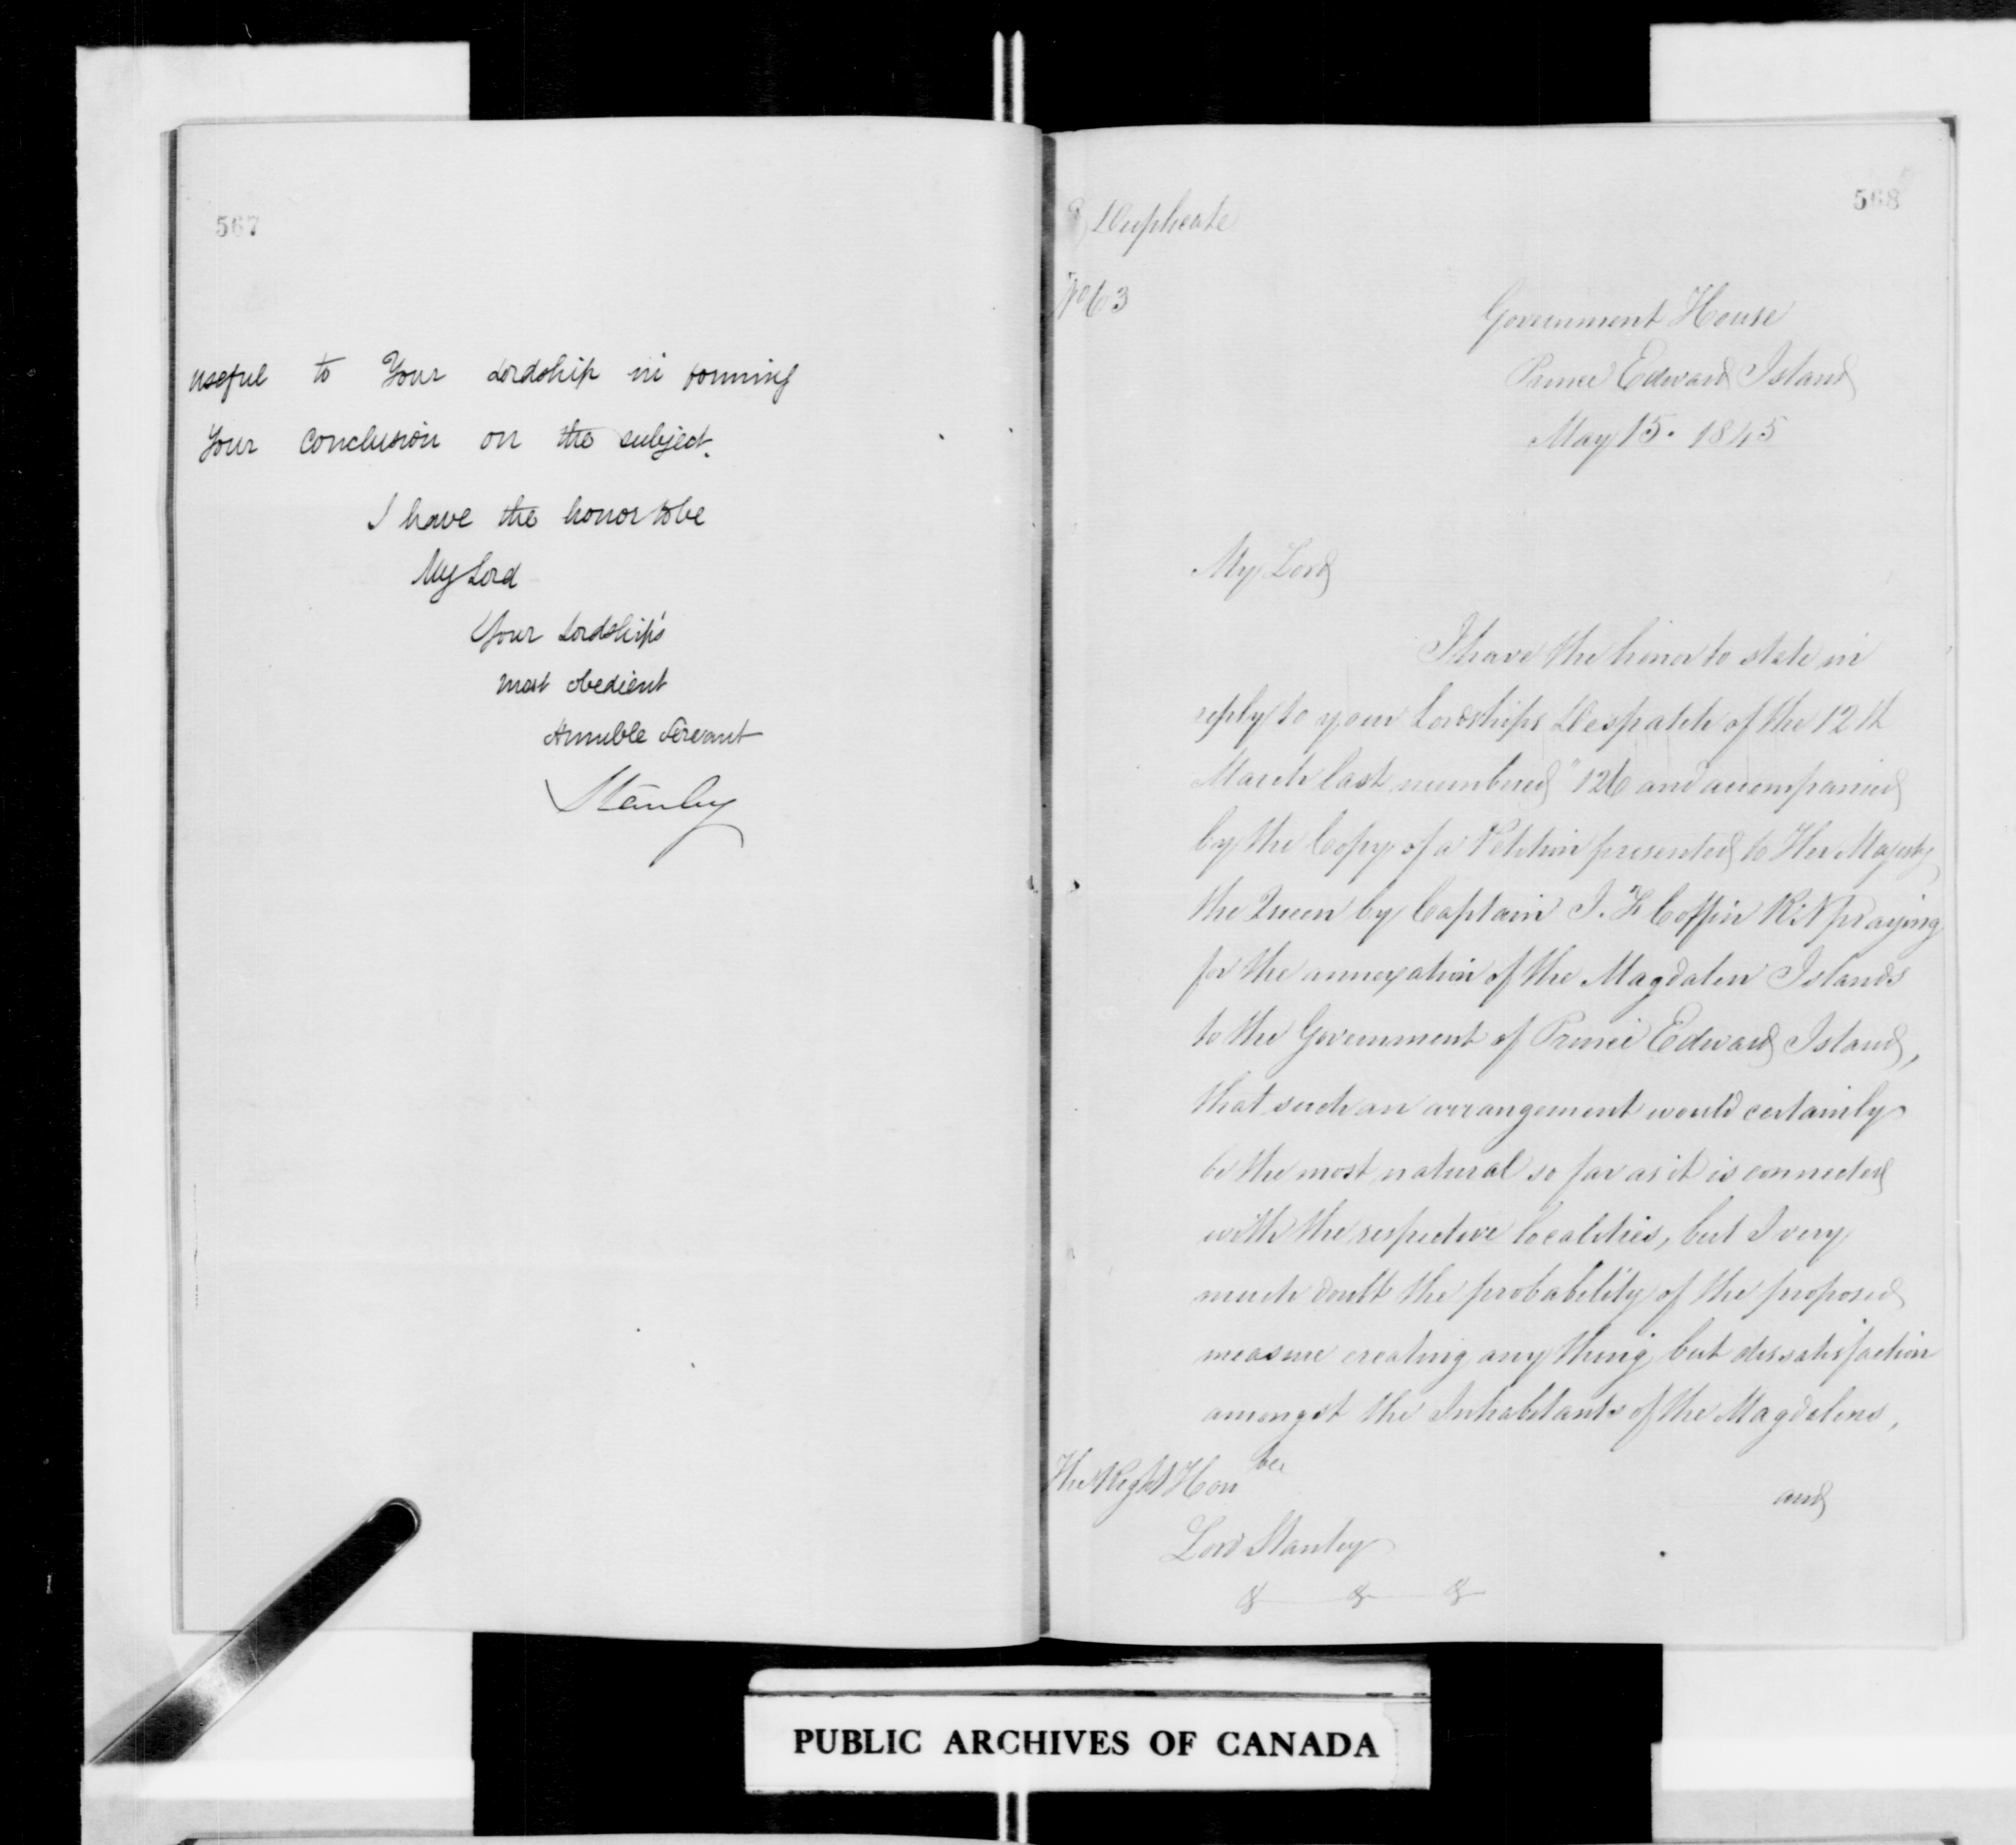 567
useful to Your Lordship in forming
Your Conclusion on the subject.
I have the honor to be
My Lord
Your Lordship's
most obedient
Humble Servant
Stanley
568
Duplicate
No 63
Government House
Prince Edward Island
May 15. 1845
My Lord
I have the honor to state in
reply to your Lordships Despatch of the 12th
March last numbered "126 and accompanied
by the Copy of a Petition presented to Her Majesty
the Queen by Captain I. Coffin RN praying
for the annexation of the Magdalen Islands
to the Government of Prince Edward Island,
that such an arrangement would certainly
be the most natural so far as it is connected
with the respective localities, but I very
much doubt the probability of the proposed
measure creating any thing but dissatisfaction
amongst the Inhabitants of the Magdalens,
and
The Right Honble
Lord Stanley
& & &
PUBLIC ARCHIVES OF CANADA